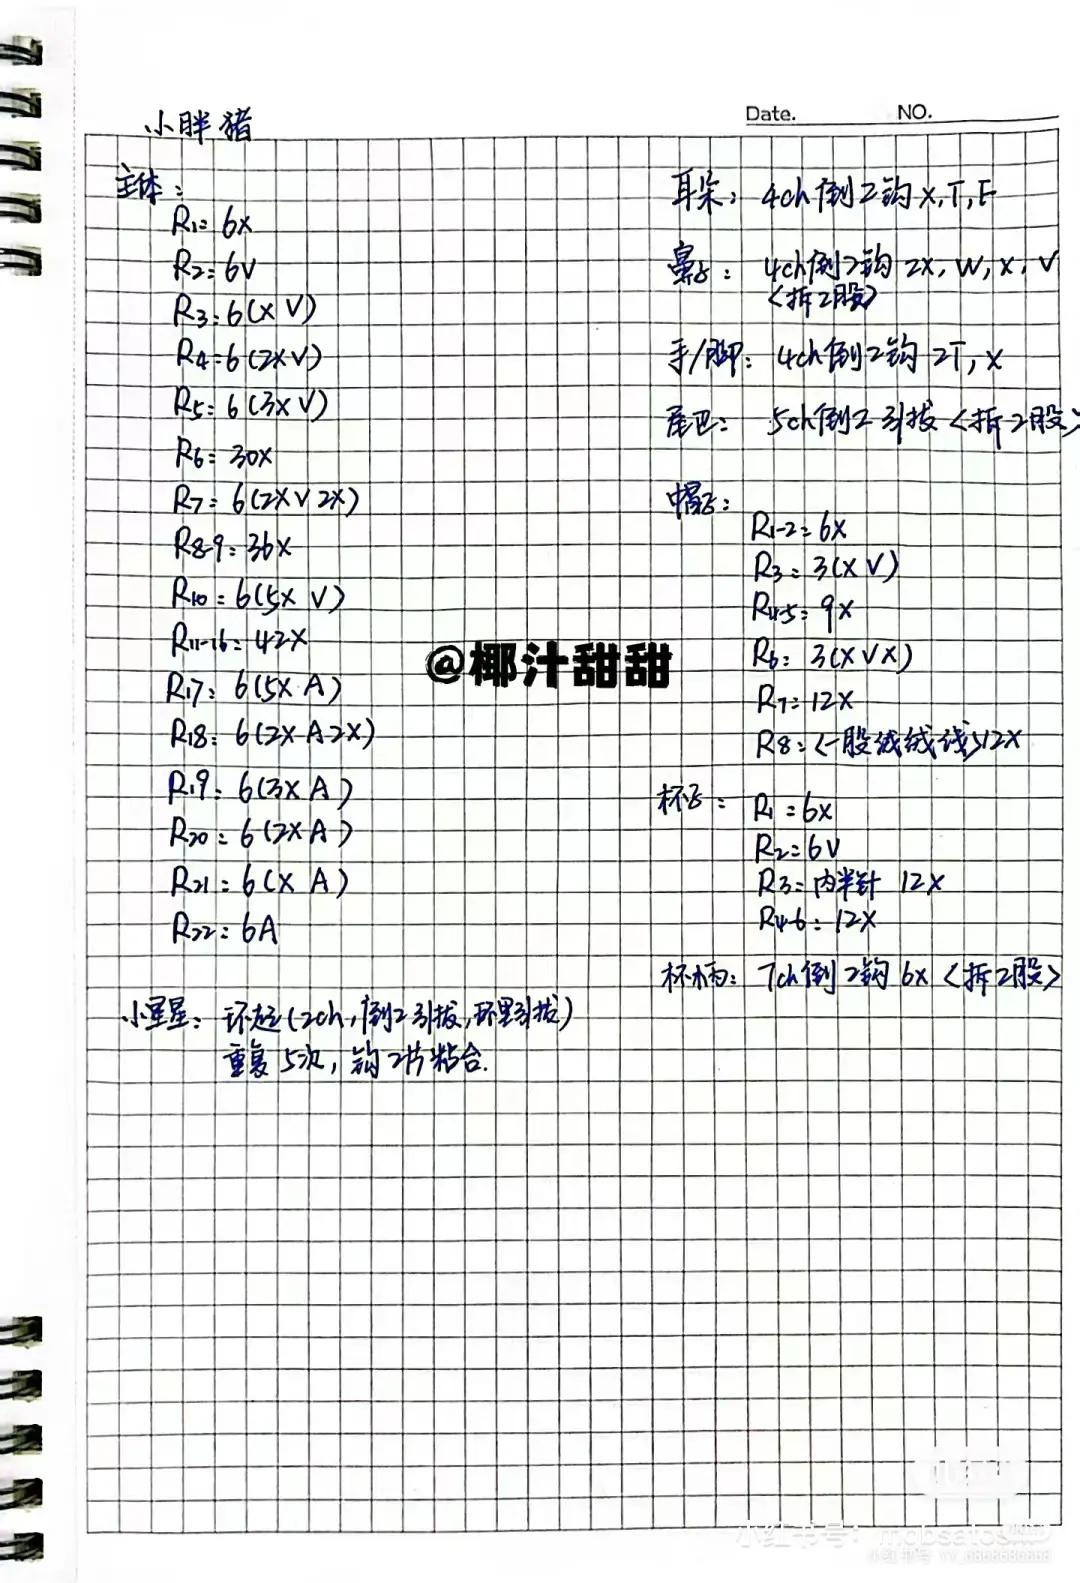 Date.
NO.
小胖猪
主体:
R1= 6X
R2= 6V
R3: 6(X V)
R4= 6(2XV)
R5= 6(3XV)
R6= 30X
R7= 6(2XV2X)
R8-9: 36X
R10= 6(5X V)
R11-16= 42X
R17: 6(5X A)
R18: 6(2X A 2X)
R19: 6(3X A)
R20= 6(2X A)
R21= 6(X A)
R22: 6A
小星星: 环起(2ch,倒2引拔,环里引拔)
重复5次,钩2片粘合.
耳朵: 4ch倒2钩X,T,F
鼻子: 4ch倒2钩 2X, W, X, V
<拆2股>
手/脚: 4ch倒2钩 2T, X
尾巴: 5ch倒2引拔<拆2股>
帽子:
R1-2=6X
R3= 3(X V)
R4-5= 9X
R6: 3(X V X)
R7=12X
R8:<一股绒绒线>12X
杯子: R1=6X
R2=6V
R3=内半针 12X
R4-6: 12X
杯柄: 7ch倒2钩6X<拆2股>
@椰汁甜甜